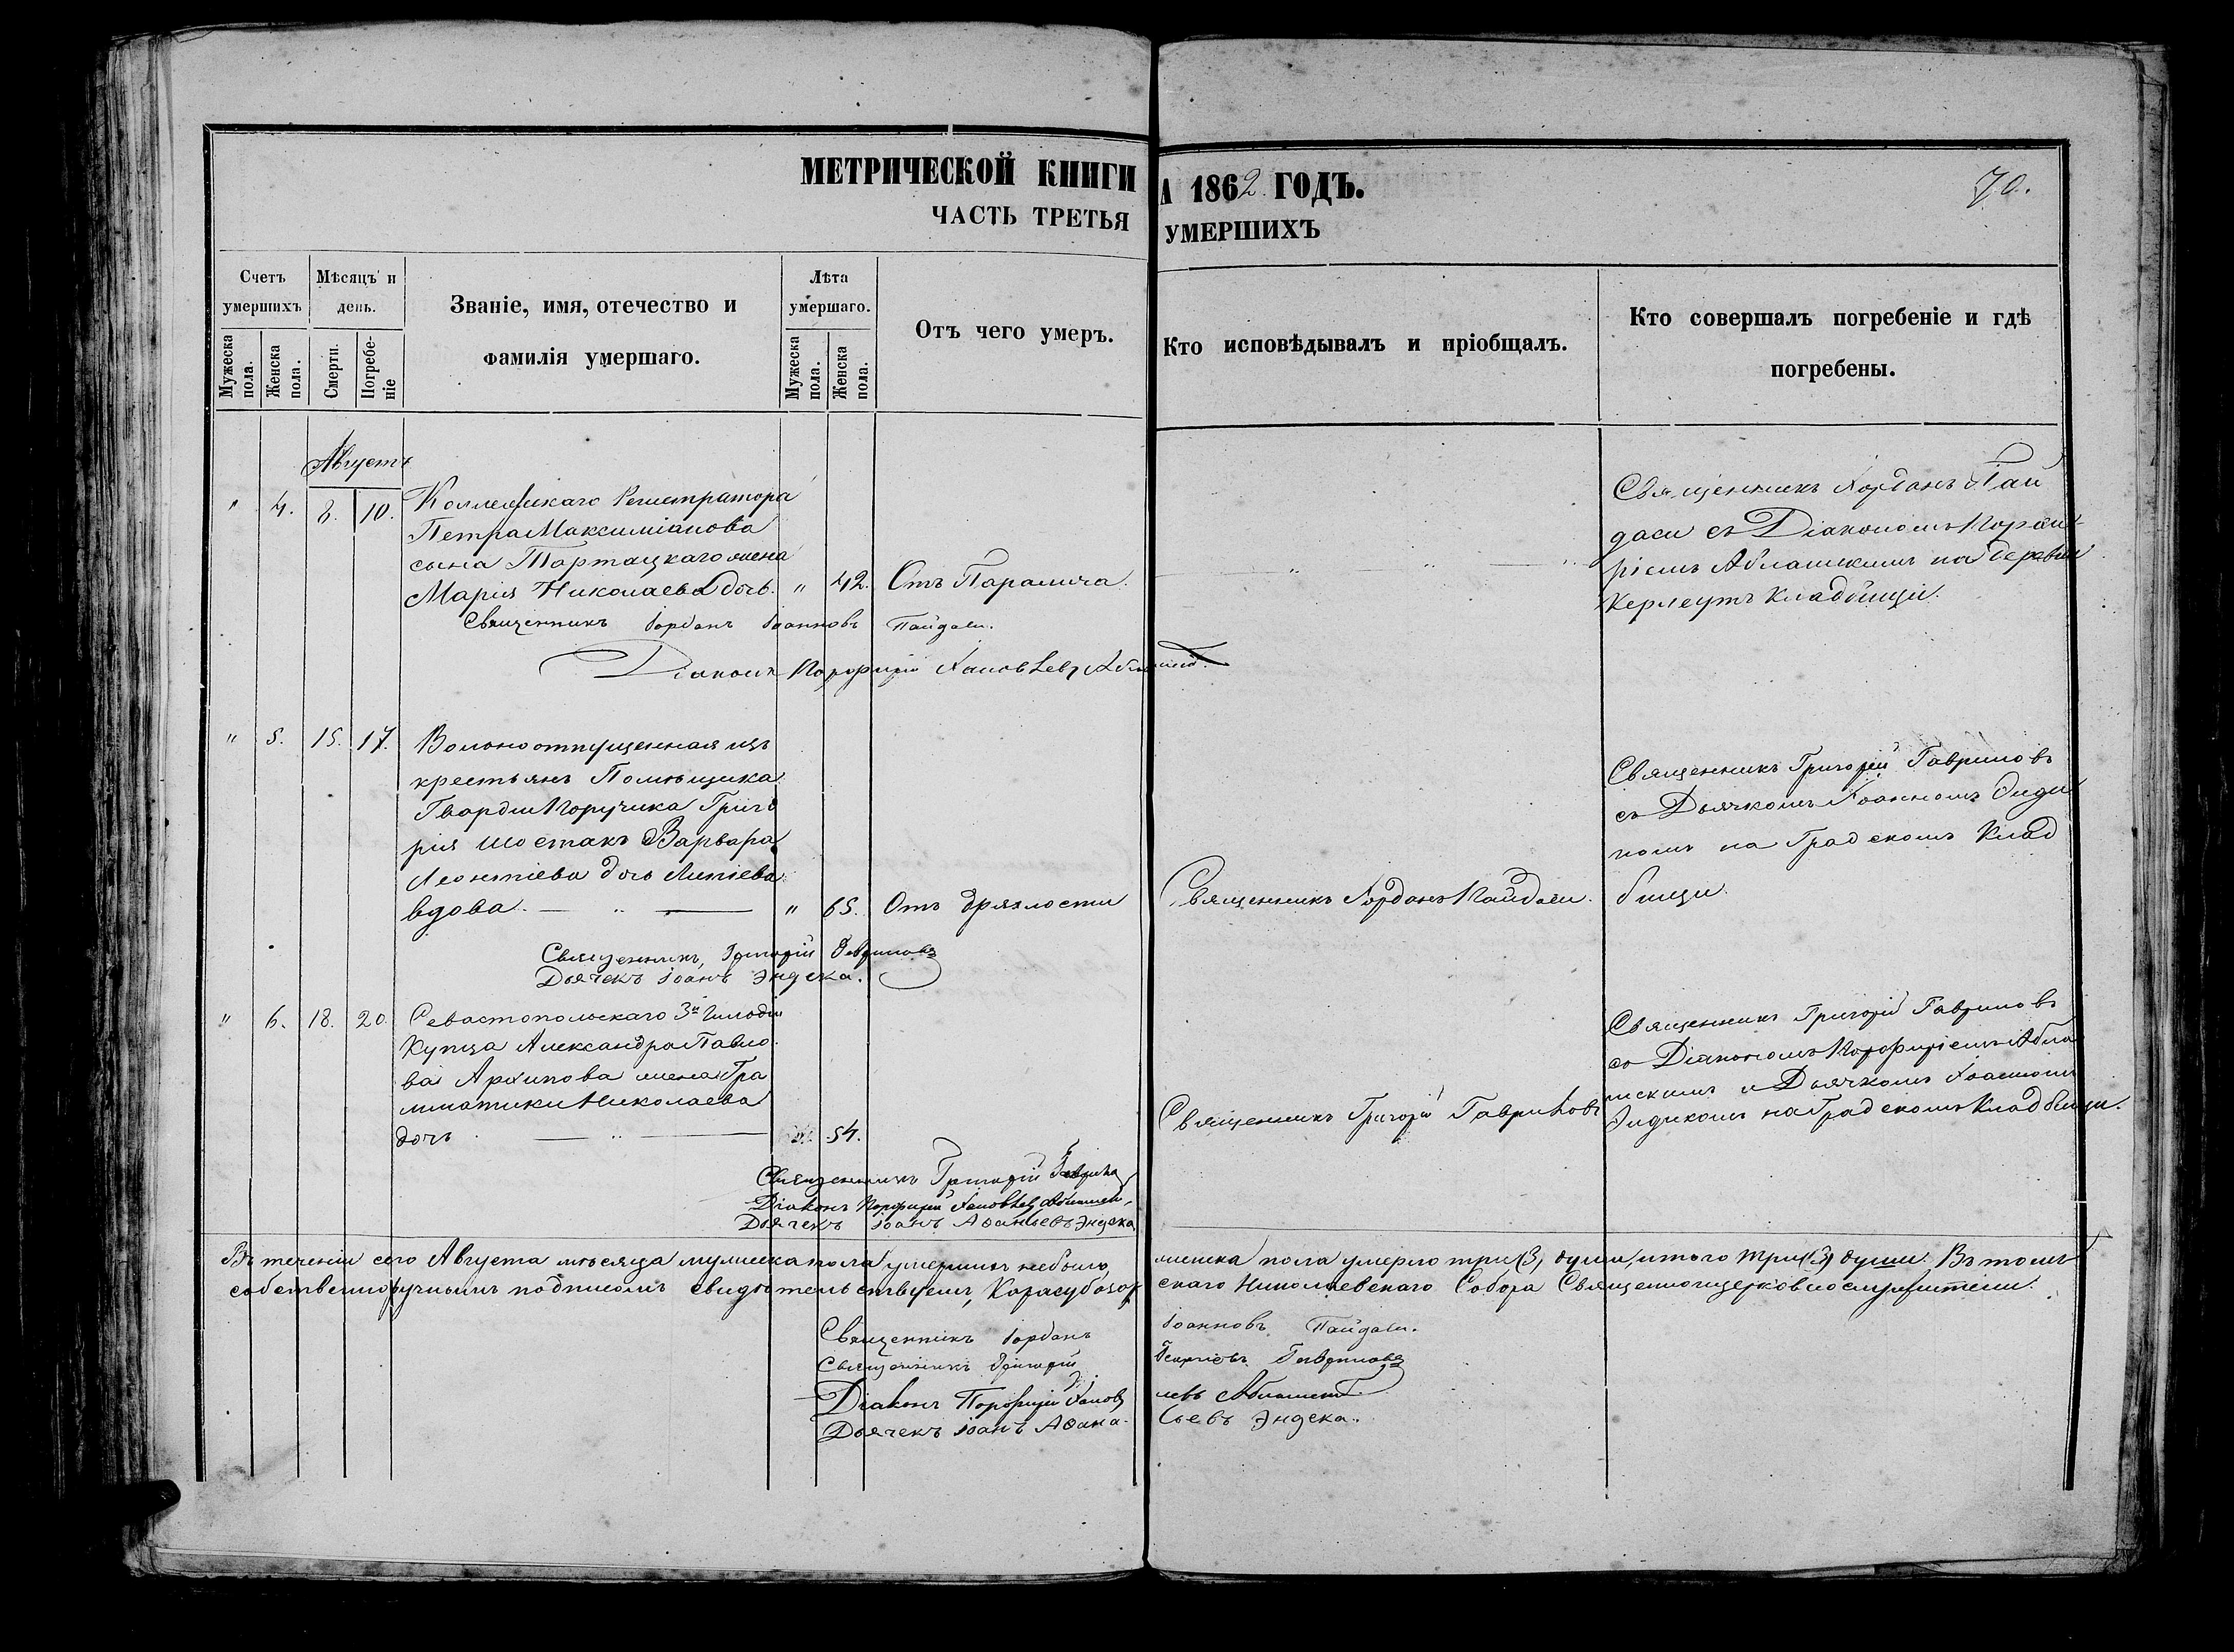 МЕТРИЧЕСКОЙ КНИГИ
А 1862 ГОДЪ.
70.
ЧАСТЬ ТРЕТЬЯ
УМЕРШИХЪ
Счетъ умершихъ
Мужеска пола.
Женска пола.
Мѣсяцъ и день.
Смерти.
Погребеніе
Званіе, имя, отечество и фамилія умершаго.
Лѣта умершаго.
Мужеска пола.
Женска пола.
Отъ чего умеръ.
Кто исповѣдывалъ и пріобщалъ.
Кто совершалъ погребеніе и гдѣ погребены.
Августъ
" 4. 8. 10. Коллежскаго Регистратора
Петра Максиміанова
сына Тартацкаго жена
Марія Николаева дочь. " 42. Отъ Паралича.
Священникъ Іорданъ Пай
даси съ Діакономъ Порфи
ріемъ на деревни
Керлеутъ Кладбищи.
Священникъ Іорданъ Іоанновъ Пайдаси.
Діаконъ Порфирій
" 5. 15. 17. Вольноотпущенная изъ
крестьянъ Помѣщика
Гвардіи Поручика Григо
рія Шостакъ Варвара
Леонтіева дочь
вдова. " 65. Отъ дряхлости
Священникъ Іорданъ Пайдаси.
Священникъ Григорій Гавриловъ
съ Дьячкомъ Іоанномъ Энде
комъ на Градскомъ Клад
бищи.
Священникъ, Григорій Гавриловъ
Дьячекъ Іоанъ Эндека.
" 6. 18. 20. Севастопольскаго 3й Гильдіи
Купца Александра Павло
ва Архипова жена Гра
мматики Николаева
дочь " 54.
Священникъ Григорій Гавриловъ
Священникъ Григорій Гавриловъ
со Діакономъ Порфиріемъ Абла
жскимъ и Дьячкомъ Іоанномъ
Эндекомъ на Градскомъ Кладбищи.
Священникъ Григорій Гавриловъ
Діаконъ Порфирій
Дьячекъ Іоанъ Аѳанасьевъ Эндека
Въ теченіи сего Августа мѣсяца мужеска пола умершихъ небыло, женска пола умерло три (3) души, итого три (3) души. Въ томъ
собственноручнымъ подписомъ свидѣтельствуемъ, Карасубазарскаго Николаевскаго Собора Священноицерковнослужители.
Священникъ Іорданъ Іоанновъ Пайдаси.
Священникъ Григорій Георгіевъ Гавриловъ
Діаконъ Порфирій
Дьячекъ Іоанъ Аѳанасьевъ Эндека.